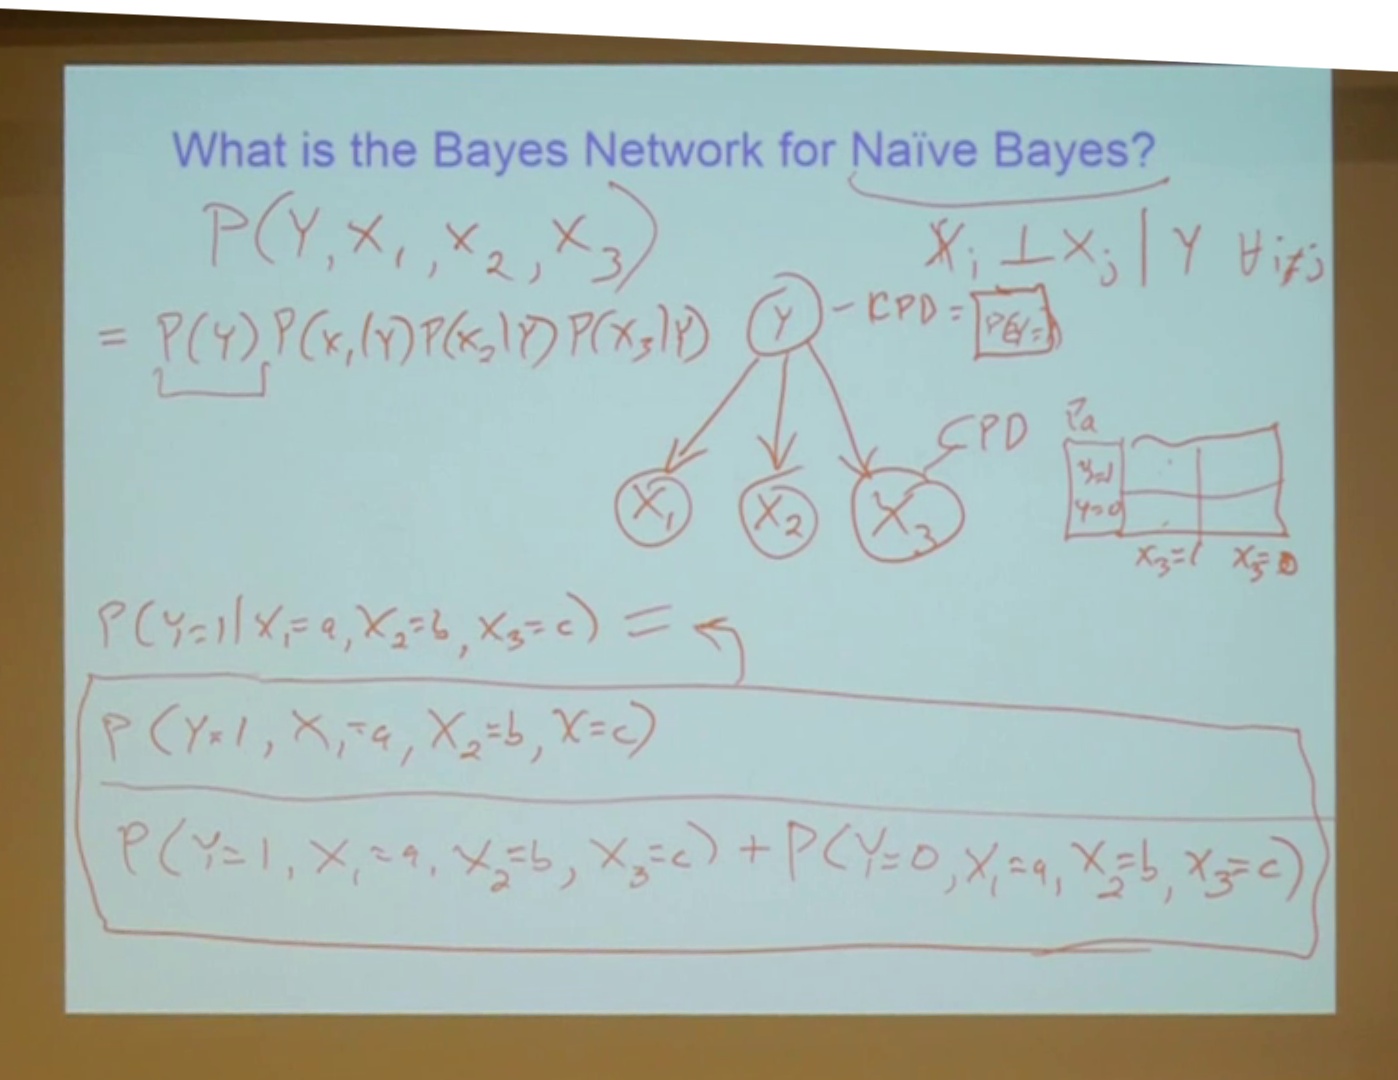 What is the Bayes Network for Naïve Bayes?
P(Y, X₁, X₂, X₃)
Xᵢ ⊥ Xⱼ | Y ∀ i≠j
= P(Y) P(X₁|Y) P(X₂|Y) P(X₃|Y)
Y – CPD = P(Y=1)
CPD
Pa
Y=1
Y=0
X₃=1 X₃=0
X₁ X₂ X₃
P(Y=1|X₁=a, X₂=b, X₃=c) =
P(Y=1, X₁=a, X₂=b, X=c)
P(Y=1, X₁=a, X₂=b, X₃=c) + P(Y=0, X₁=a, X₂=b, X₃=c)